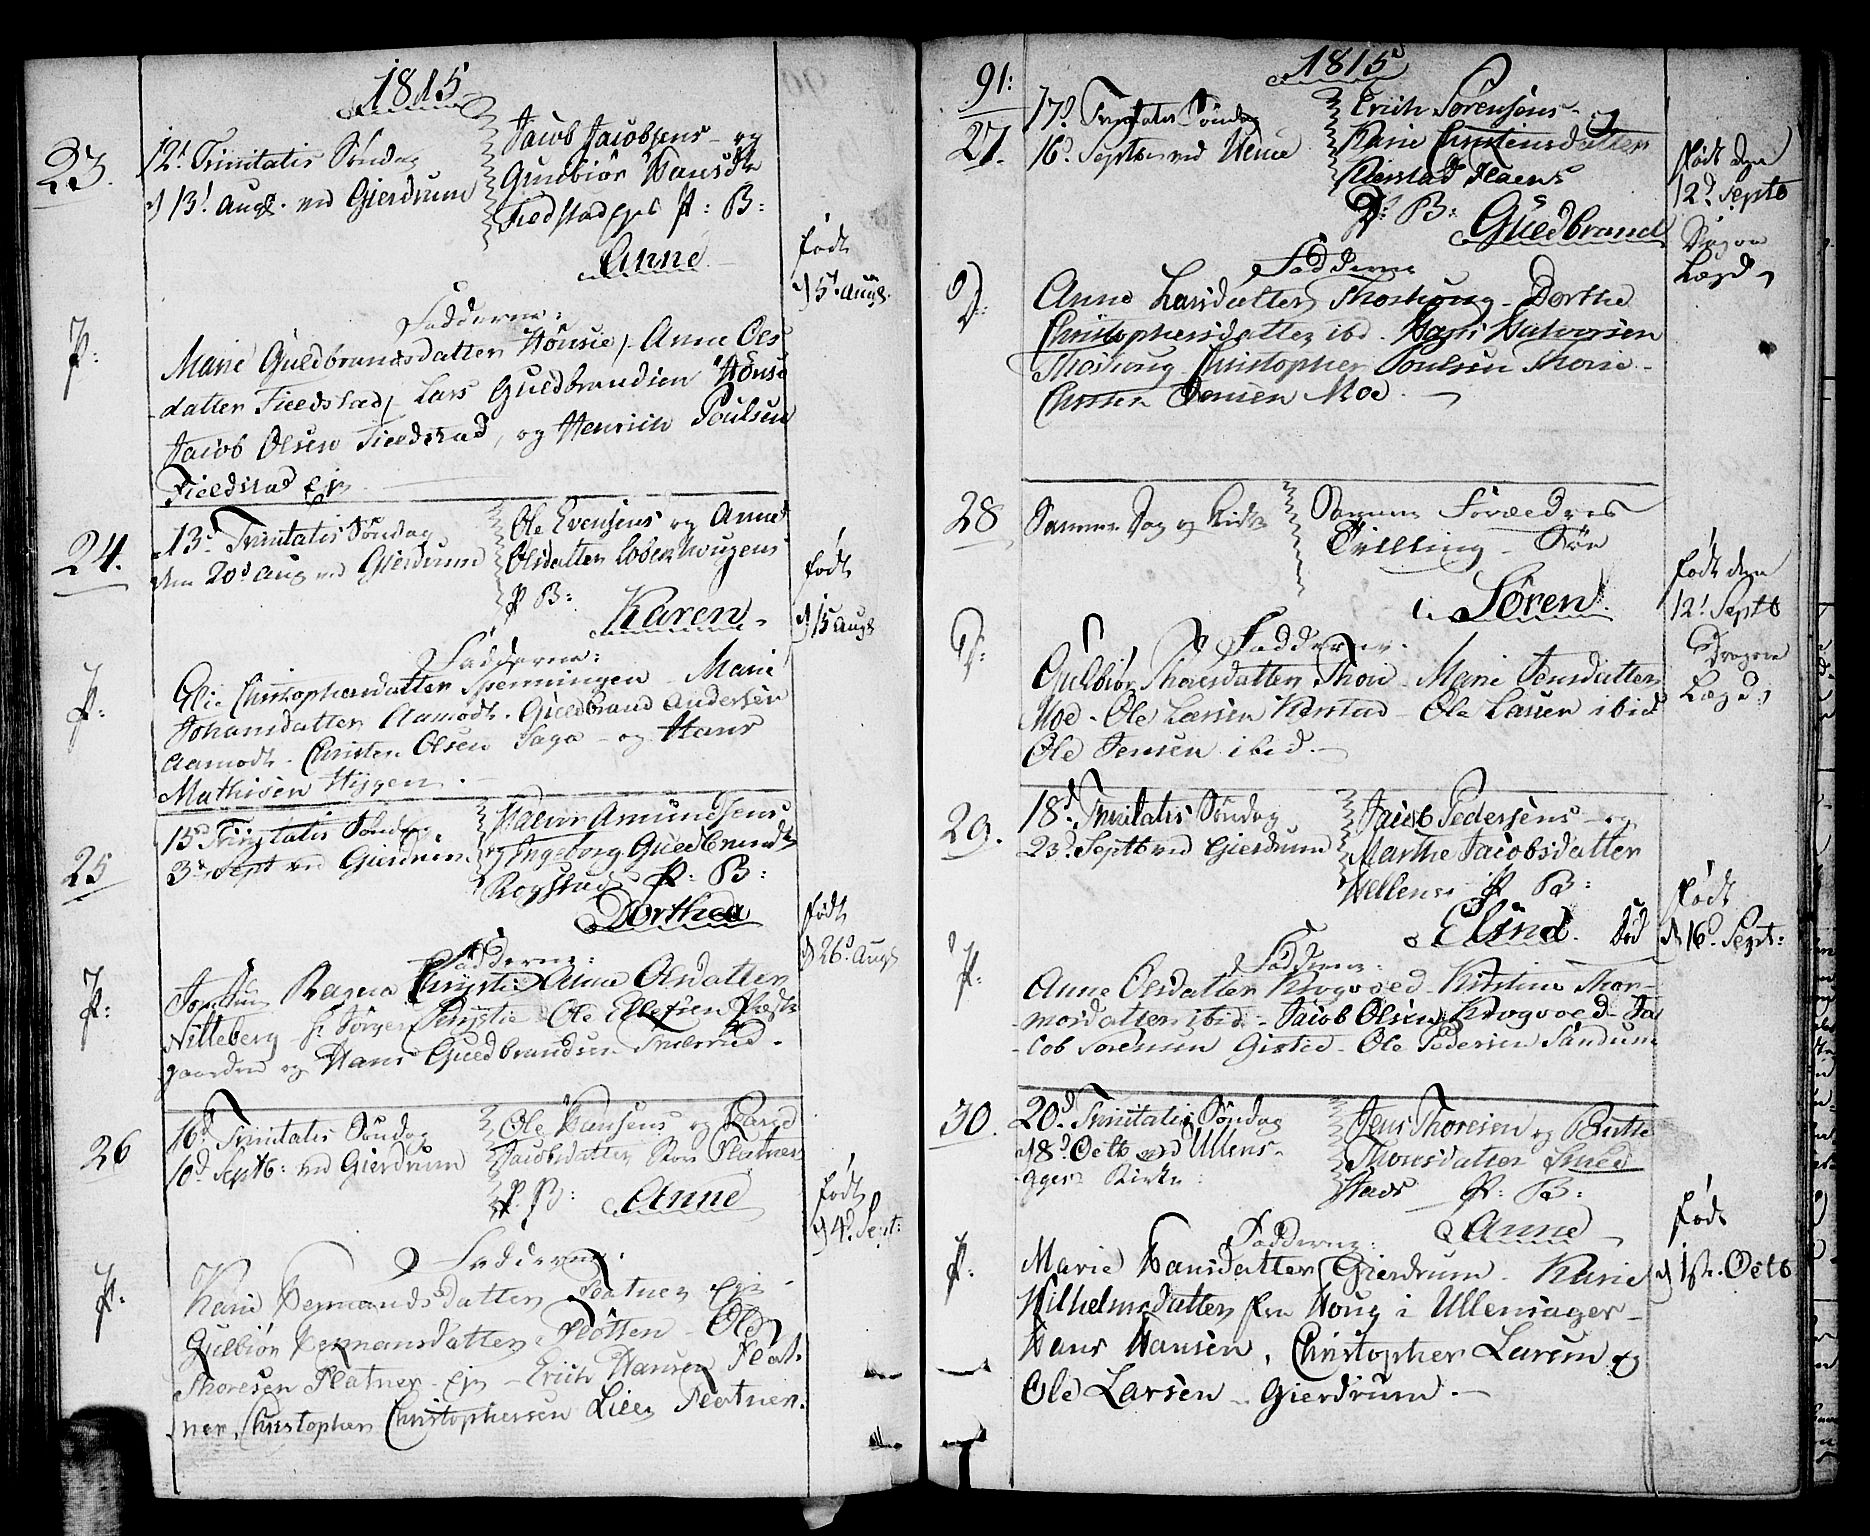 1815
23.
12te Trinitatis Søndag
d 13de Aug. ved Gierdrum
Jacob Jacobsens og
Gunbiør Hansdtr
Fieldstad Ejes P: B:
Anne
født
d 5te Augs.
Fadderne:
P:
Marie Guldbrandsdatter Hønsie, Anne Ols
datter Fieldstad, Lars Guldbrandsen Hønsie
Jacob Olsen Fieldstad, og Henrich Poulsen
Fieldstad Eje
24.
13de Trinitatis Søndag
den 20de Aug ved Gierdrum
Ole Evensens og Anne
Olsdatter
P B:
Karen
født
d 15 Augs
Fadderne:
P:
Christophersdatter Spenningen - Marie
Johansdatter Aamodt. Guldbrand Andersen
Aamodt - Christen Olsen Saga - og Hans
Mathisen Hygen.
25
15de Trinitatis Søndag
3de Sept ved Gierdrum
Halvor Amundsens
Ingeborg Guldbrandsdtr
Rogstad P: B:
Dorthea
født
d 26de Augs
Fadderne:
P:
Ragna Christie Anne Olsdatter
Nitteberg - Hr Jørgen Christie - Ole Ellefsen Præste
gaarden og Hans Guldbrandsen
26
16de Trinitatis Søndag
10de Septb: ved Gierdrum
Ole Hansens og Kari
Jacobsdatter Stor Flatner
P. B:
Anne
født
d 4de Sept:
Fadderne.
P:
Karie Hermandsdatter Flatner Eje -
Gulbiør Hermansdatter Slotten - Ole
Thoresen Flatner Eje - Erich Hansen Flat-
ner, Christopher Christophersen Lille Flatner.
91:
1815
27.
17de Trinitatis Søndag
16de Septbr ved Heni
Erich Sørensens
Karie Christensdatter
Kierstad Plaens
D: B:
Guldbrand
født den
12te Septb
Dragon
Lægd
Fadderne
D:
Anne Larsdatter Thoshoug - Dorthe
Christophersdatter ibd. Hans Halvorsen
Thoshoug - Christopher Poulsen Thorie -
Christen Jensen Moe. -
28
Samme Dag og Kirke
Samme Forældres
Tvilling - Søn
Søren
født den
12te Septb
Dragon
Lægd
Fadderne.
D:
Gulbiør Thoresdatter Thorie - Marie Jensdatter
Moe - Ole Larsen Kierstad - Ole Larsen ibid
Ole Jensen ibid. -
29.
18de Trinitatis Søndag
23de Septb ved Gierdrum
Jacob Pedersens og
Marthe Jacobsdatter
Hellens P B:
Elind. Død
født
d 16de Sept:
Fadderne:
P:
Anne Olsdatter Krogvoed - Kirstine Thor-
mosdatter ibid - Jacob Olsen Krogvoed - Ja-
cob Sørensen Gistie - Ole Pedersen Sandum
30.
20de Trinitatis Søndag
d 8de Octb ved Ullens-
agers Kirke
Jens Thoresen og Birthe
Thoresdatter Smed
stads P: B:
Anne
født
d 1ste Octb
Fadderne:
P:
Marie Hansdatter Gierdrum - Karie
Wilhelmsdatter fra Houg i Ullensager -
Hans Hansen, Christopher Larsen og
Ole Larsen - Gierdrum. -